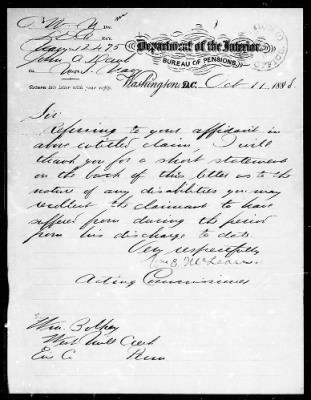 Div.
No.
John A.
Return this letter with your reply.
Department of the Interior,
BUREAU OF PENSIONS,
Washington, D.C. Oct 11, 188
Sir:
Referring to your affidavit in
above entitled claim, I will
thank you for a short statement
on the back of this letter as to the
nature of any disabilities you may
recollect the claimant to have
suffered from during the period
from his discharge to date.
Very respectfully
McLean
Acting Commissioner
Wm.
West Mill Creek
Erie Co. Penn